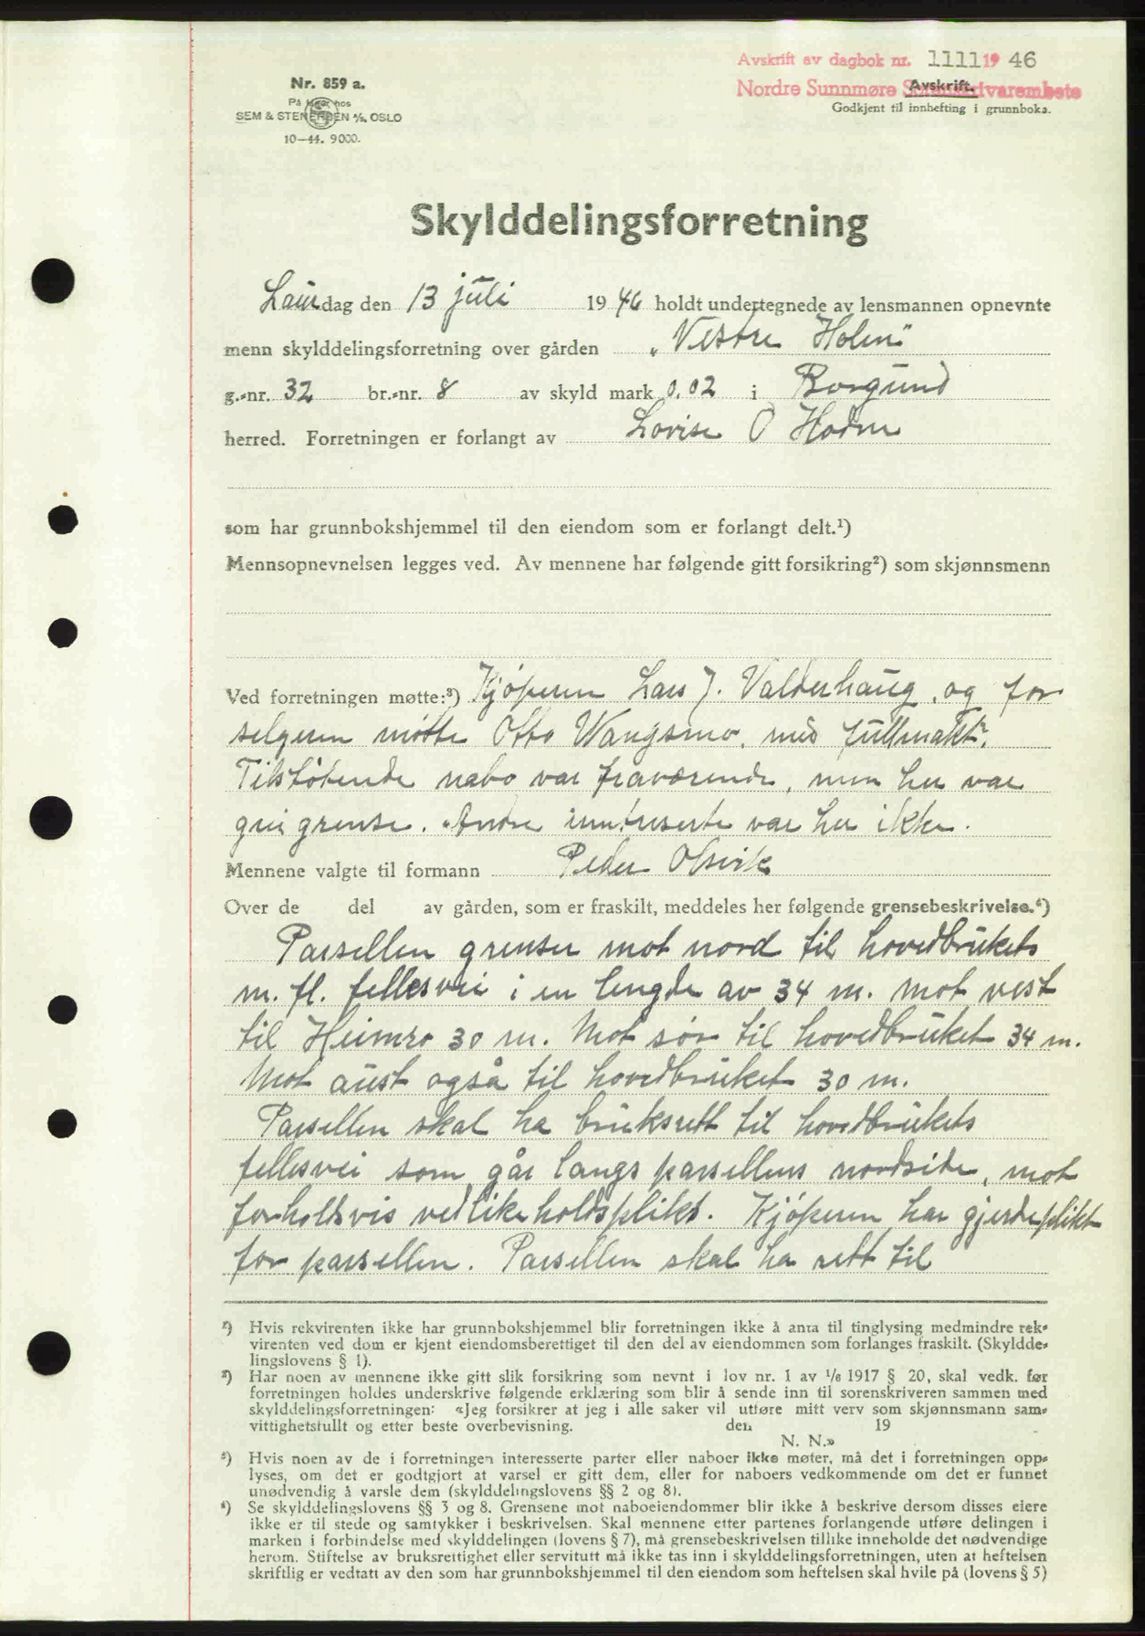 Avskrift av dagbok nr. 1111 1946
Nordre Sunnmøre Sorenskrivarembete
Avskrift.
Godkjent til innhefting i grunnboka.
Nr. 859 a.
På lager hos
SEM & STENERSEN A/S, OSLO
10—44. 9000.
Skylddelingsforretning
Laurdag den 13 juli 1946 holdt undertegnede av lensmannen opnevnte
menn skylddelingsforretning over gården „Vestre Holen"
g.-nr. 32 br.-nr. 8 av skyld mark 0,02 i Borgund
herred. Forretningen er forlangt av Lovise O
som har grunnbokshjemmel til den eiendom som er forlangt delt.¹)
Mennsopnevnelsen legges ved. Av mennene har følgende gitt forsikring²) som skjønnsmenn
Ved forretningen møtte:³) Kjøperen Lars J. Valderhaug, og for
selgeren møtte Otto Wangsmo, med fullmakt.
Tilstøtende nabo var fraværende, men her var
grei grense. Andre interesserte var her ikke.
Mennene valgte til formann Peder Olsvik
Over de del av gården, som er fraskilt, meddeles her følgende grensebeskrivelse.⁴)
Parsellen grenser mot nord til hovedbrukets
m. fl. fellesvei i en lengde av 34 m. Mot vest
til Heimro 30 m. Mot sør til hovedbruket 34 m.
Mot aust også til hovedbruket 30 m.
Parsellen skal ha bruksrett til hovedbrukets
fellesvei som går langs parsellens nordside, mot
forholdsvis vedlikeholdsplikt. Kjøperen har gjerdeplikt
for parsellen. Parsellen skal ha rett til
¹) Hvis rekvirenten ikke har grunnbokshjemmel blir forretningen ikke å anta til tinglysing medmindre rek-
virenten ved dom er kjent eiendomsberettiget til den del av eiendommen som forlanges fraskilt. (Skyldde-
lingslovens § 1).
²) Har noen av mennene ikke gitt slik forsikring som nevnt i lov nr. 1 av 1/6 1917 § 20, skal vedk. før
forretningen holdes underskrive følgende erklæring som blir å sende inn til sorenskriveren sammen med
skylddelingsforretningen: «Jeg forsikrer at jeg i alle saker vil utføre mitt verv som skjønnsmann sam-
vittighetsfullt og etter beste overbevisning. den 19
N. N.»
³) Hvis noen av de i forretningen interesserte parter eller naboer ikke møter, må det i forretningen opp-
lyses, om det er godtgjort at varsel er gitt dem, eller for naboers vedkommende om det er funnet
unødvendig å varsle dem (skylddelingslovens §§ 2 og 8).
⁴) Se skylddelingslovens §§ 3 og 8. Grensene mot naboeiendommer blir ikke å beskrive dersom disses eiere
ikke er til stede og samtykker i beskrivelsen. Skal mennene etter partenes forlangende utføre delingen i
marken i forbindelse med skylddelingen (lovens § 7), må grensebeskrivelsen tillike inneholde det nødvendige
herom. Stiftelse av bruksrettighet eller servitutt må ikke tas inn i skylddelingsforretningen, uten at heftelsen
skriftlig er vedtatt av den som har grunnbokshjemmel til den eiendom som heftelsen skal hvile på (lovens § 5)